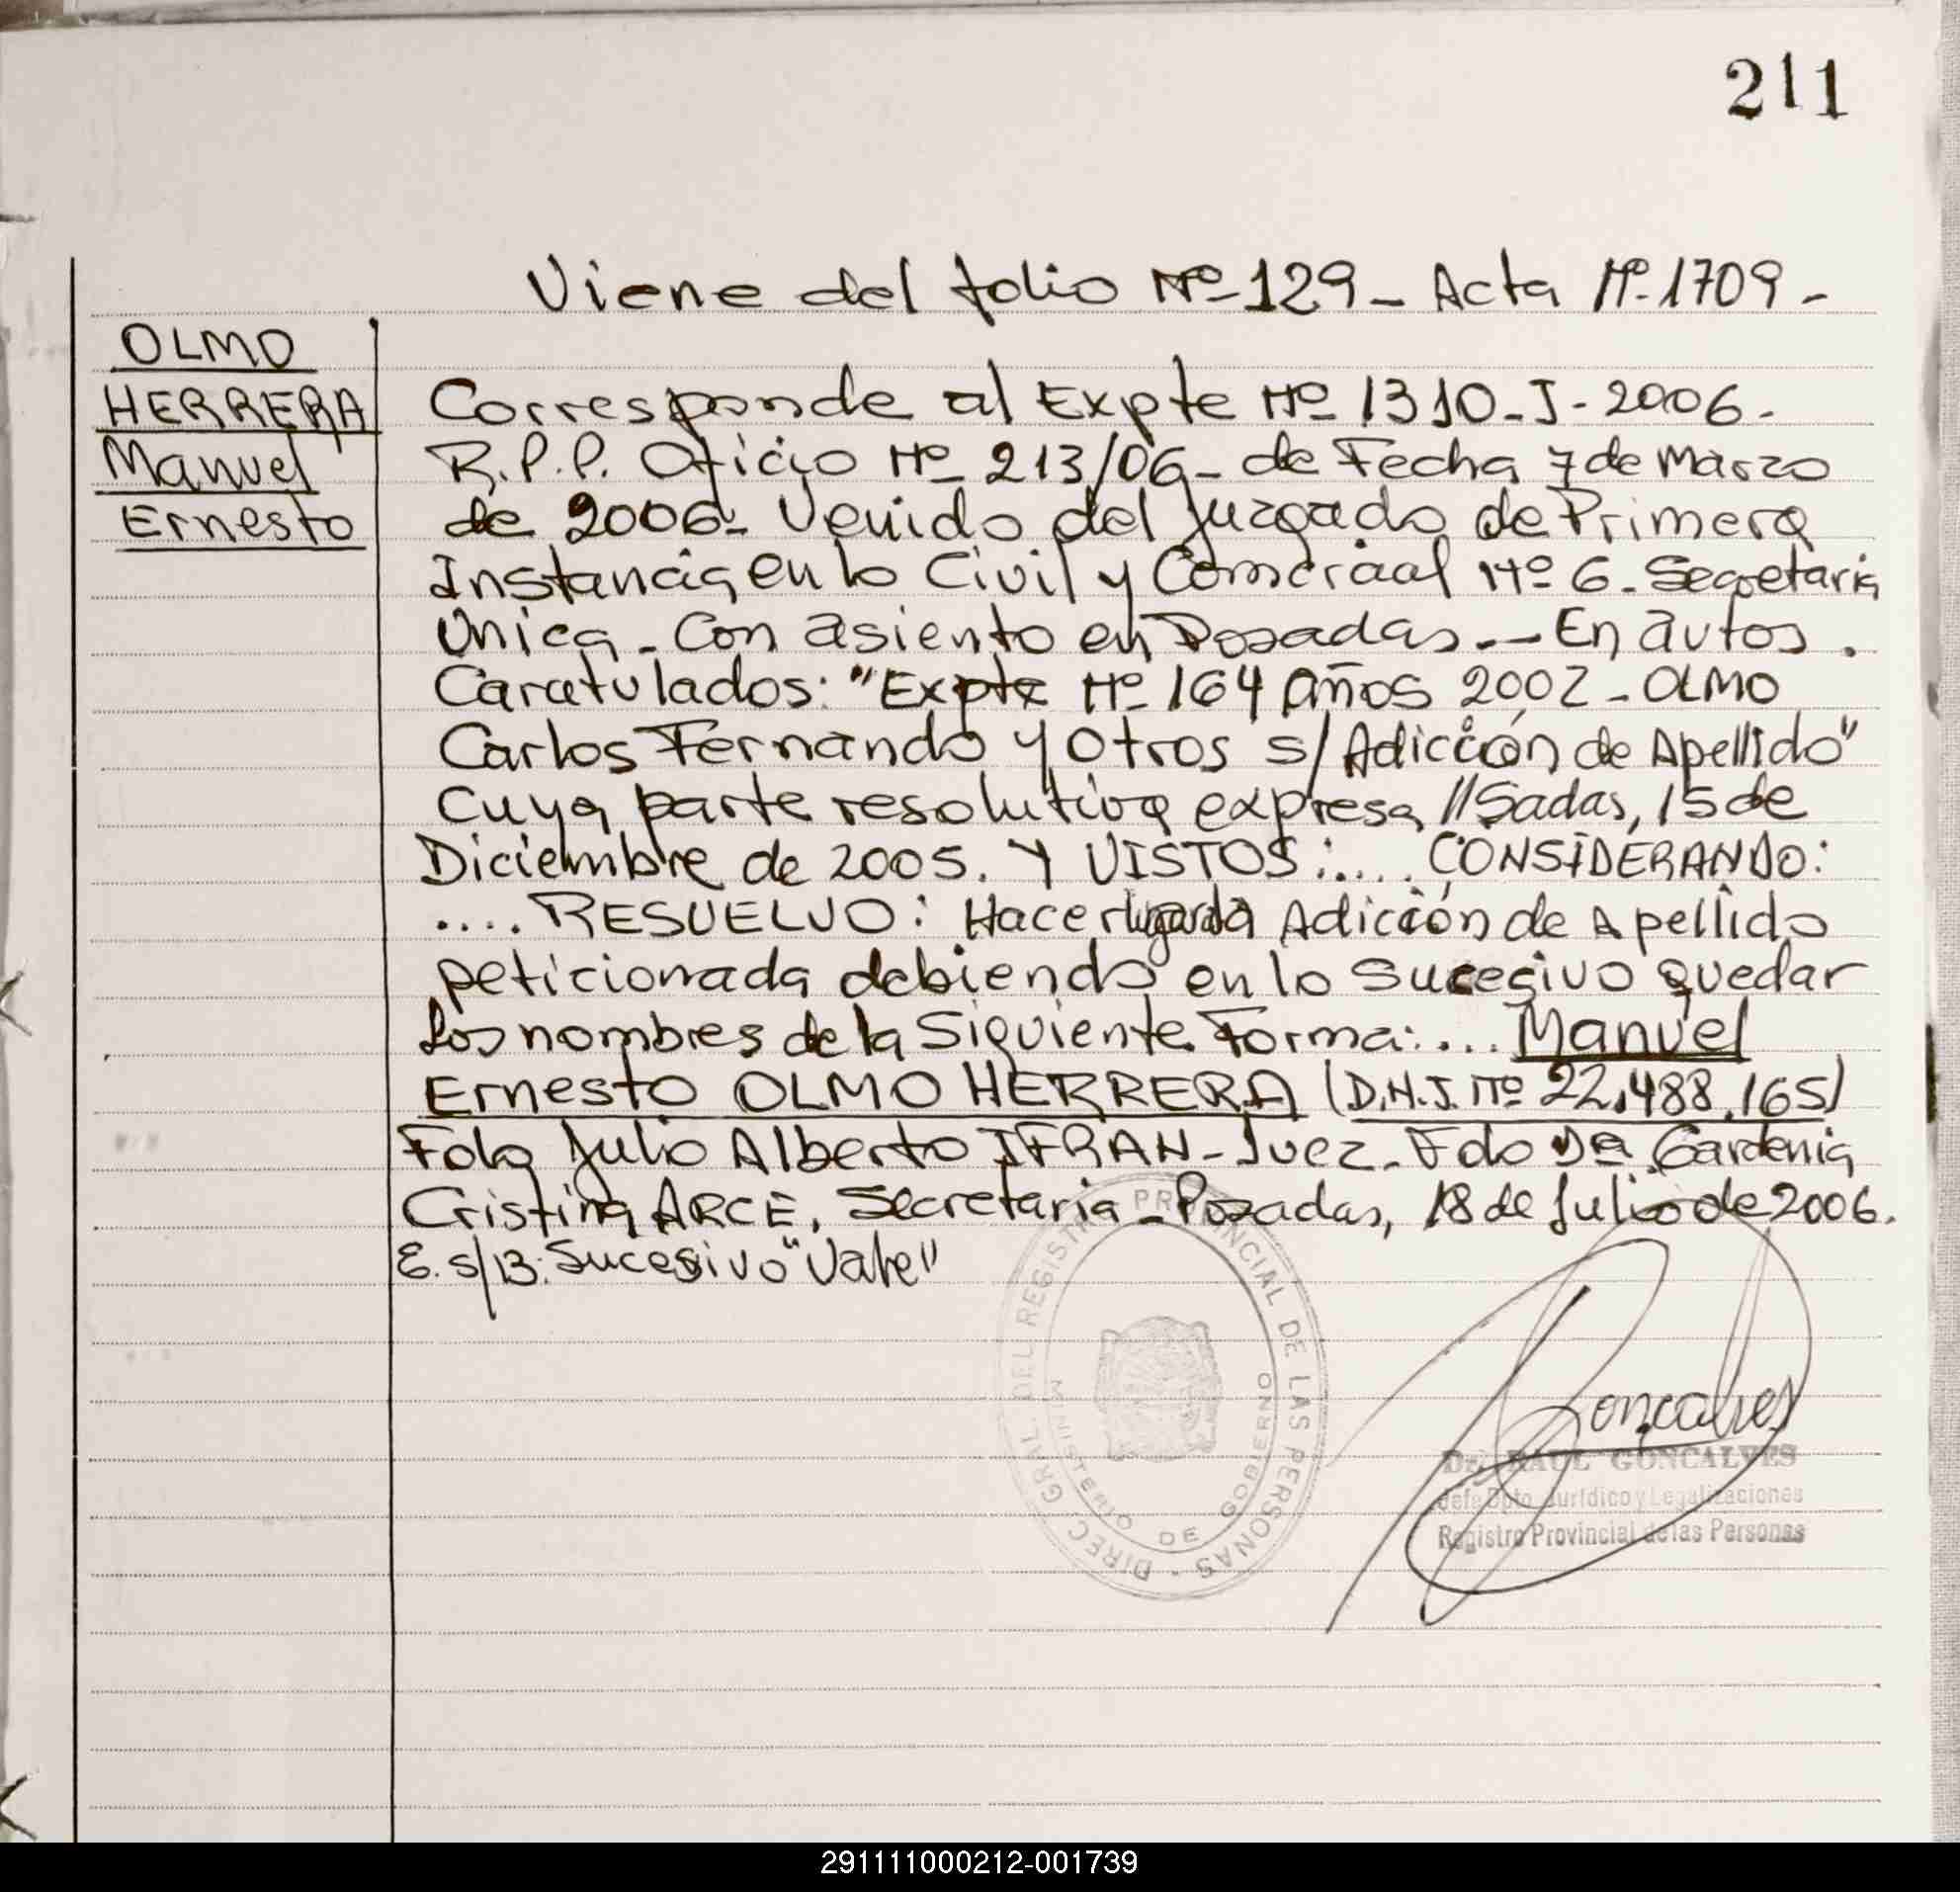 211
Viene del folio Nº 129 - Acta Nº 1709 -
OLMO
HERRERA
Manuel
Ernesto
Corresponde al Expte Nº 1310-J-2006.
R.P.P. Oficio Nº 213/06- de Fecha 7 de Marzo
de 2006- Venido del Juzgado de Primera
Instancia en lo Civil y Comercial Nº 6 - Secretaria
Unica - Con asiento en Posadas - En autos.
Caratulados: "Expte Nº 164 años 2002 - OLMO
Carlos Fernando y Otros s/ Adicción de Apellido"
Cuya parte resolutiva expresa //Sadas, 15 de
Diciembre de 2005. Y VISTOS:.... CONSIDERANDO:
.... RESUELVO: Hacer lugar a la Adicción de Apellido
peticionada debiendo en lo sucesivo quedar
los nombres de la Siguiente Forma:... Manuel
Ernesto OLMO HERRERA (D.N.I. Nº 22.488.165)
Fdo Julio Alberto IFRAN - Juez - Fdo Dra Gardenia
Cristina ARCE, Secretaria - Posadas, 18 de Julio de 2006.
E. s/B: Sucesivo "Vale"
DIREC. GRAL. DEL REGISTRO PROVINCIAL DE LAS PERSONAS
MINISTERIO DE GOBIERNO
Goncalves
Dr. RAUL GONCALVES
Jefe Dpto. Jurídico y Legalizaciones
Registro Provincial de las Personas
291111000212-001739